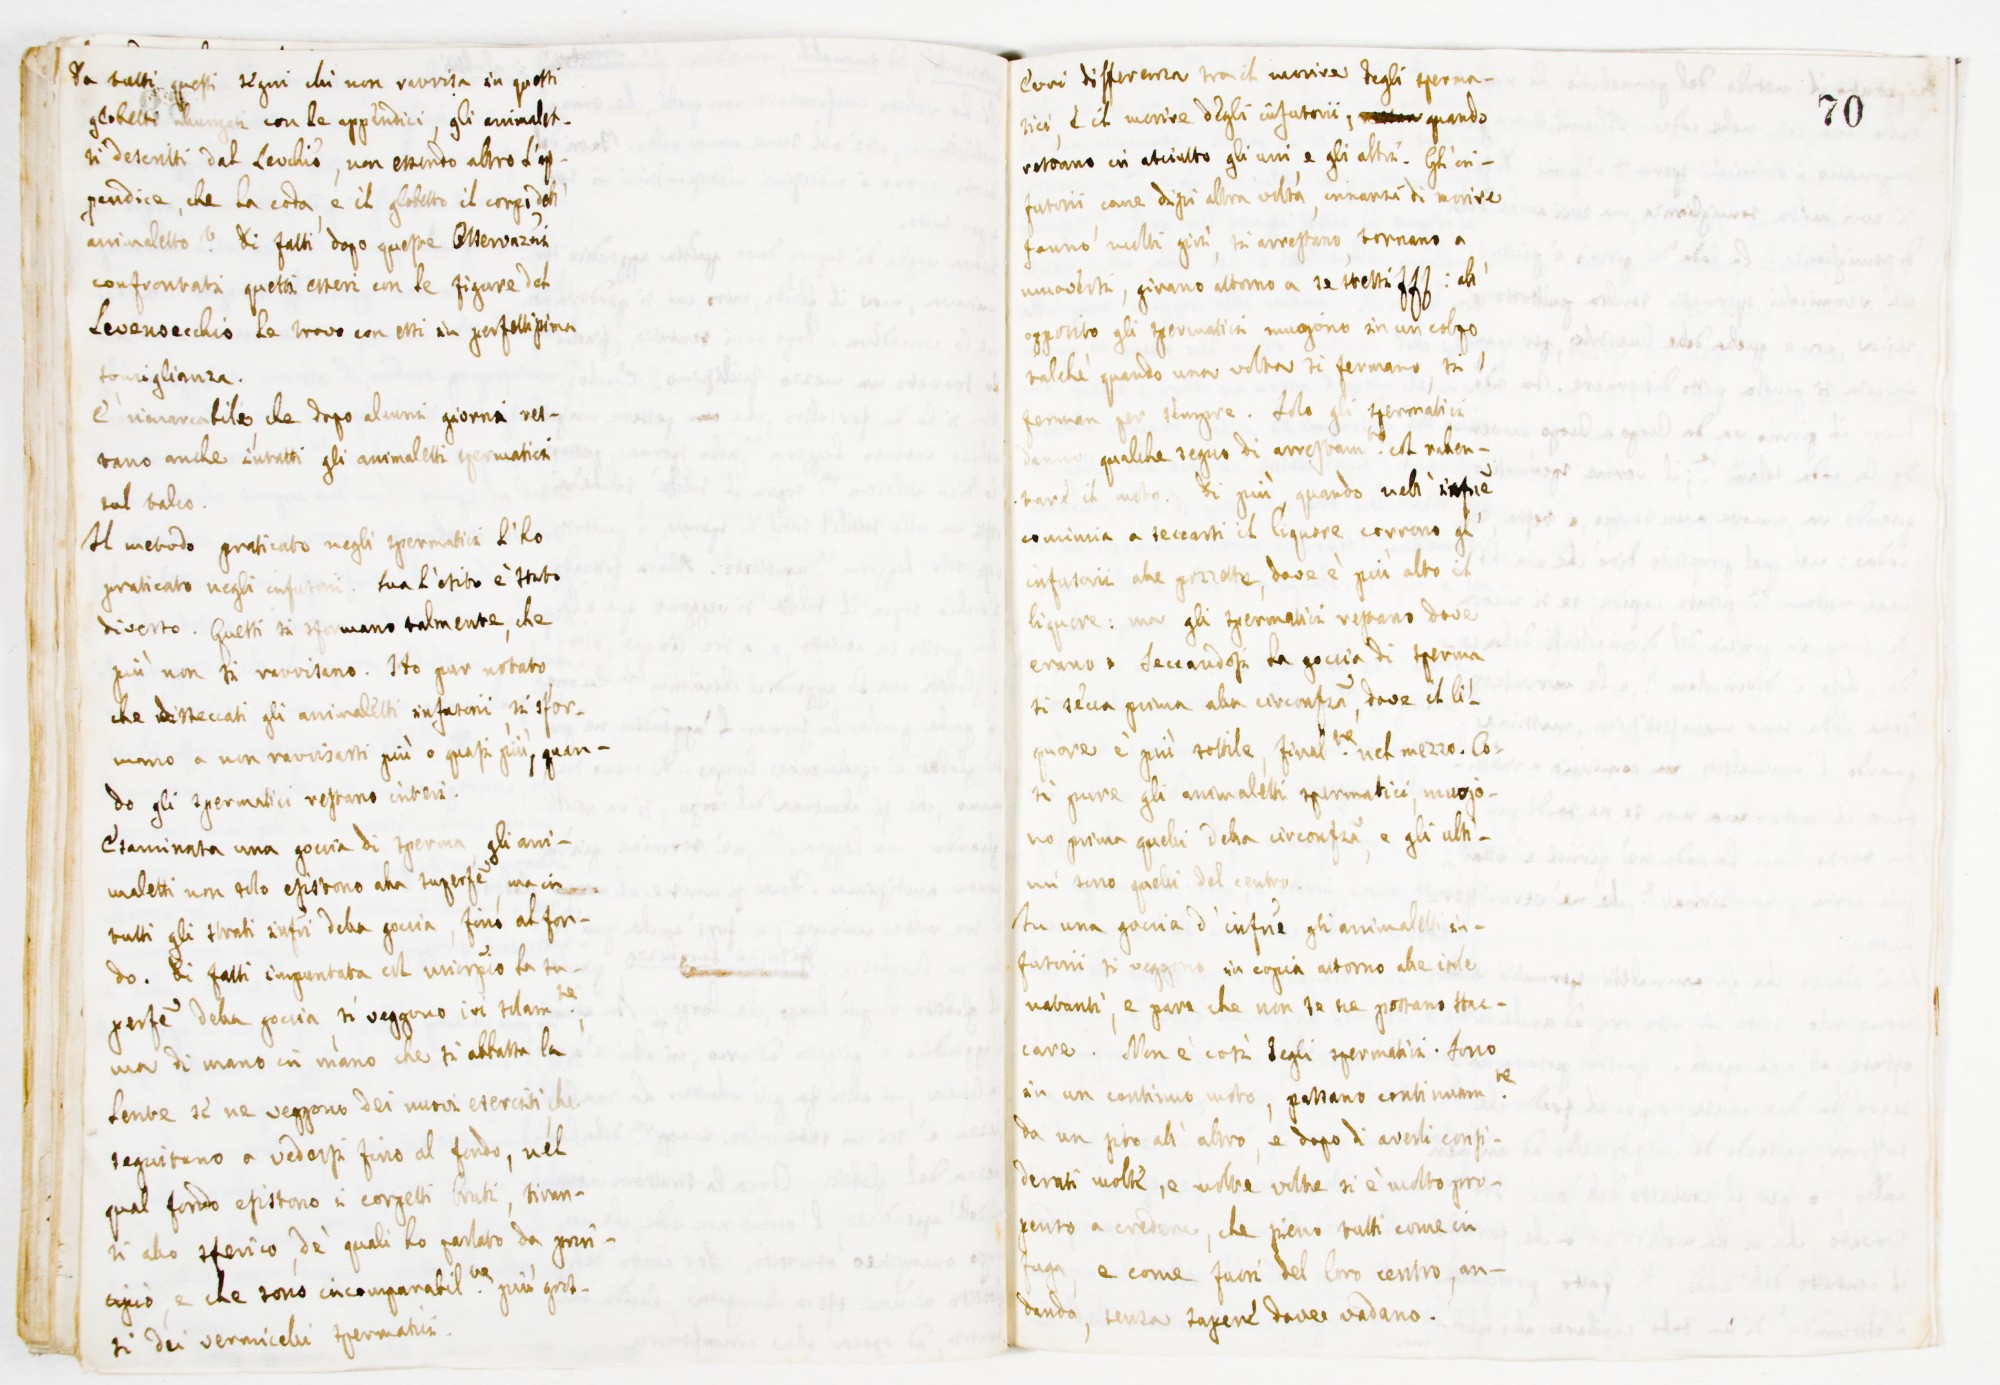 Da tutti questi segni chi non ravvisa in questi
globetti allungati con le appendici, gli animalet-
ti descritti dal Levchio, non essendo altro l'ap-
pendice, che la coda, e il globetto il corpo dell'
animaletto? Di fatti dopo queste Osservazni
confrontati questi esseri con le figure del
Levenoecchio le trovo con essi in perfettissima
somiglianza.
E' rimarcabile che dopo alcuni giorni res-
tano anche intatti gli animaletti spermatici
sul talco.
Il metodo praticato negli spermatici l'ho
praticato negli infusorii. Ma l'esito è stato
diverso. Questi si sformano talmente, che
più non si ravvisano. Ho pur notato
che disseccati gli animaletti infusorii, si sfor-
mano a non ravvisarsi più o quasi più, quan-
do gli spermatici restano interi.
Esaminata una goccia di sperma, gli ani-
maletti non solo esistono alla superfe, ma in
tutti gli strati infri della goccia, fino al fon-
do. Di fatti impuntata col micrpio la su-
perfe della goccia, si veggono ivi solamte,
ma di mano in mano che si abbassa la
lente se ne veggono dei nuovi eserciti che
seguitano a vedersi fino al fondo, nel
qual fondo esistono i corpetti bruti, tiran-
ti allo sferico, de' quali ho parlato da prin-
cipio, e che sono incomparabilte più gros-
si dei vermicelli spermatici.
70
Evvi differenza tra il morire degli sperma-
tici, e il morire degli infusorii, quando
restano in asciutto gli uni, e gli altri. Gli in-
fusorii come dissi altra volta, innanzi di morire
fanno molti giri, si arrestano tornano a
muoversi, girano attorno a se stessi: all'
opposito gli spermatici muojono in un colpo
talchè quando una volta si fermano si
ferman per sempre. Solo gli spermatici
danno qualche segno di arrestam.to col rallen-
tare il moto. Di più, quando nell' infne
comincia a seccarsi il liquore corrono gl'
infusorii alle pozzette, dove è più alto il
liquore: ma gli spermatici restano dove
erano. Seccandosi la goccia di sperma
si secca prima alla circonfza, dove il li-
quore è più sottile, finalte nel mezzo. Co-
sì pure gli animaletti spermatici, muojo-
no prima quelli della circonfza, e gli ulti-
mi sono quelli del centro.
In una goccia d'infne gli animaletti in-
fusorii si veggono in copia attorno alle isole
natanti, e pare che non se ne possano stac-
care. Non è così degli spermatici. Sono
in un continuo moto, passano continuamte
da un sito all' altro, e dopo di averli consi-
derati molte, e molte volte si è molto pro-
penso a credere, che sieno tutti come in
fuga, e come fuori del loro centro, an-
dando, senza sapere dove vadano.